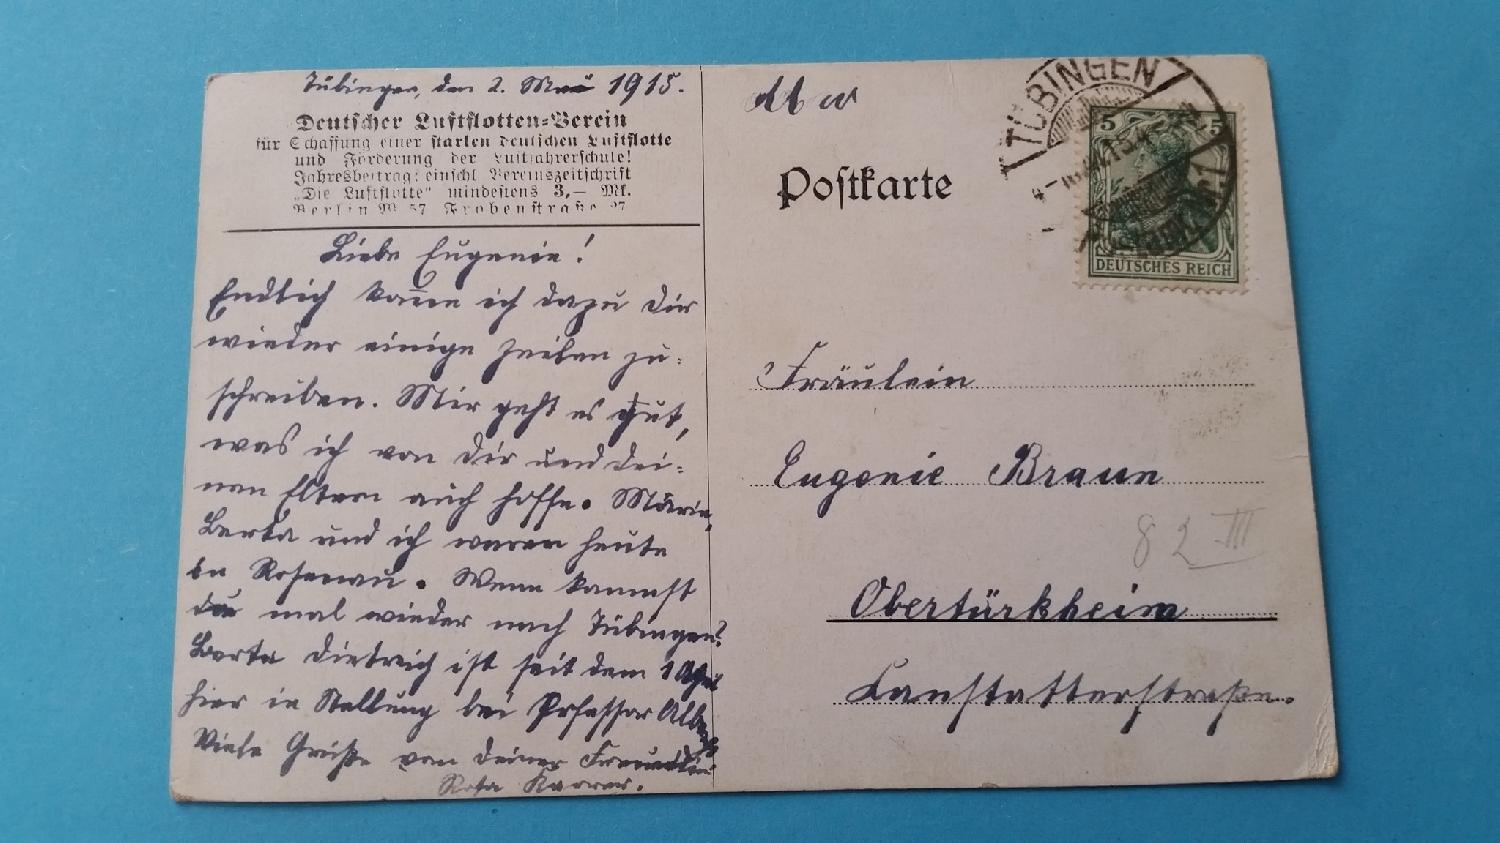 Tübingen, den 2. Mai 1915.
Deutscher Luftflotten-Verein
für Schaffung einer starken deutschen Luftflotte
und Förderung der Luftfahrerschule!
Jahresbeitrag: einschl Vereinszeitschrift
„Die Luftflotte" mindestens 3,— Mk.
Berlin W 57 Frobenstraße 27
Liebe Eugenie!
Endlich komme ich dazu dir
wieder einige Zeilen zu-
schreiben. Mir geht es gut,
was ich von dir und dei-
nen Eltern auch hoffe. Marie,
Berta und ich waren heute
in Rosenau. Wenn kommst
du mal wieder nach Tübingen?
Berta Dietrich ist seit dem 1 April
hier in Stellung bei Professor
Viele Grüße von deiner Freundin
Rosa Karrer.
Abs
Postkarte
TÜBINGEN
5 5
DEUTSCHES REICH
Fräulein
Eugenie Braun
82 III
Obertürkheim
Canstatterstraße.